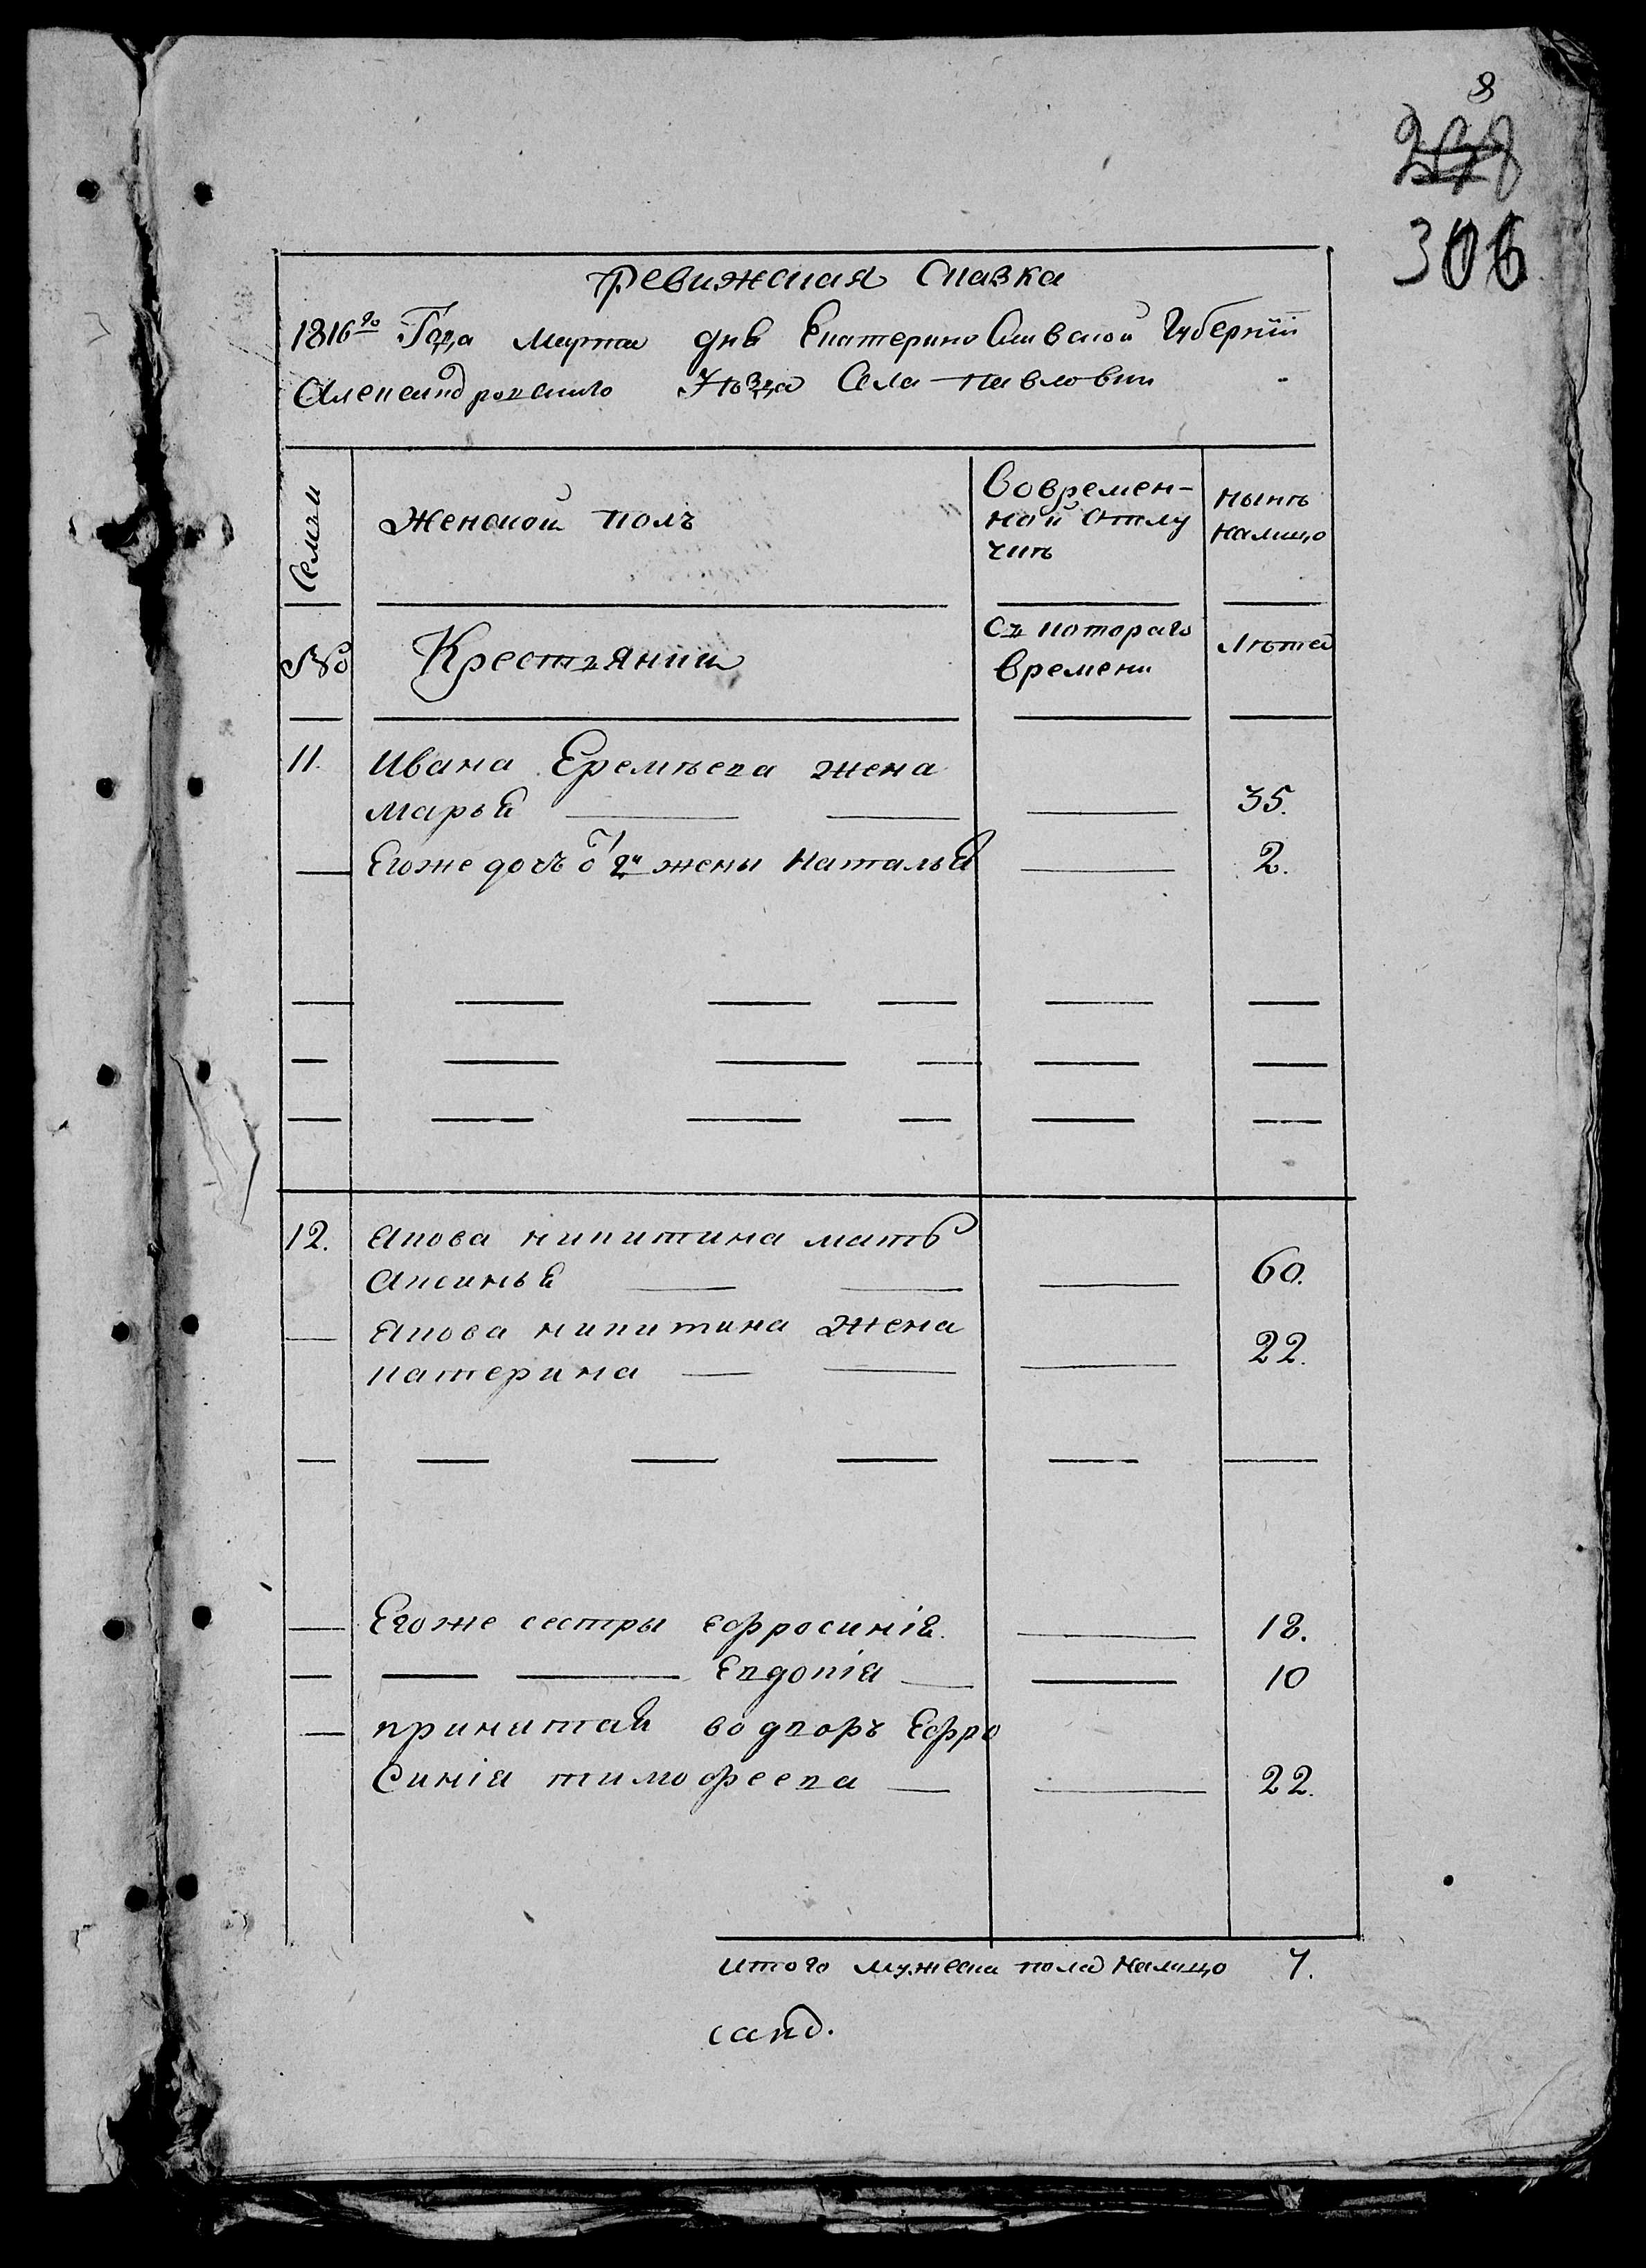 8
306
Ревижская Сказка
1816го Года Марта дня Екатерино Славской Губернïи
Александровскаго Уѣзда Села Павловки
Семьи
Женской полъ
Вовремен-
ной отлу
чкѣ
нынѣ
налицо
№
Крестьянки
Съ котораго
времени
Лѣтъ
11. Ивана Еремѣева жена
Марья 35.
Егоже дочь о 2й жены Наталья 2.
12. Якова Никитина мать
Аксинья 60.
Якова Никитина жена
Катерина 22.
Егоже сестры Ефросинiя. 18.
Евдокiя 10
принятая во дворъ Ефро
синiя тимофеева 22.
итого мужеска пола налицо 7.